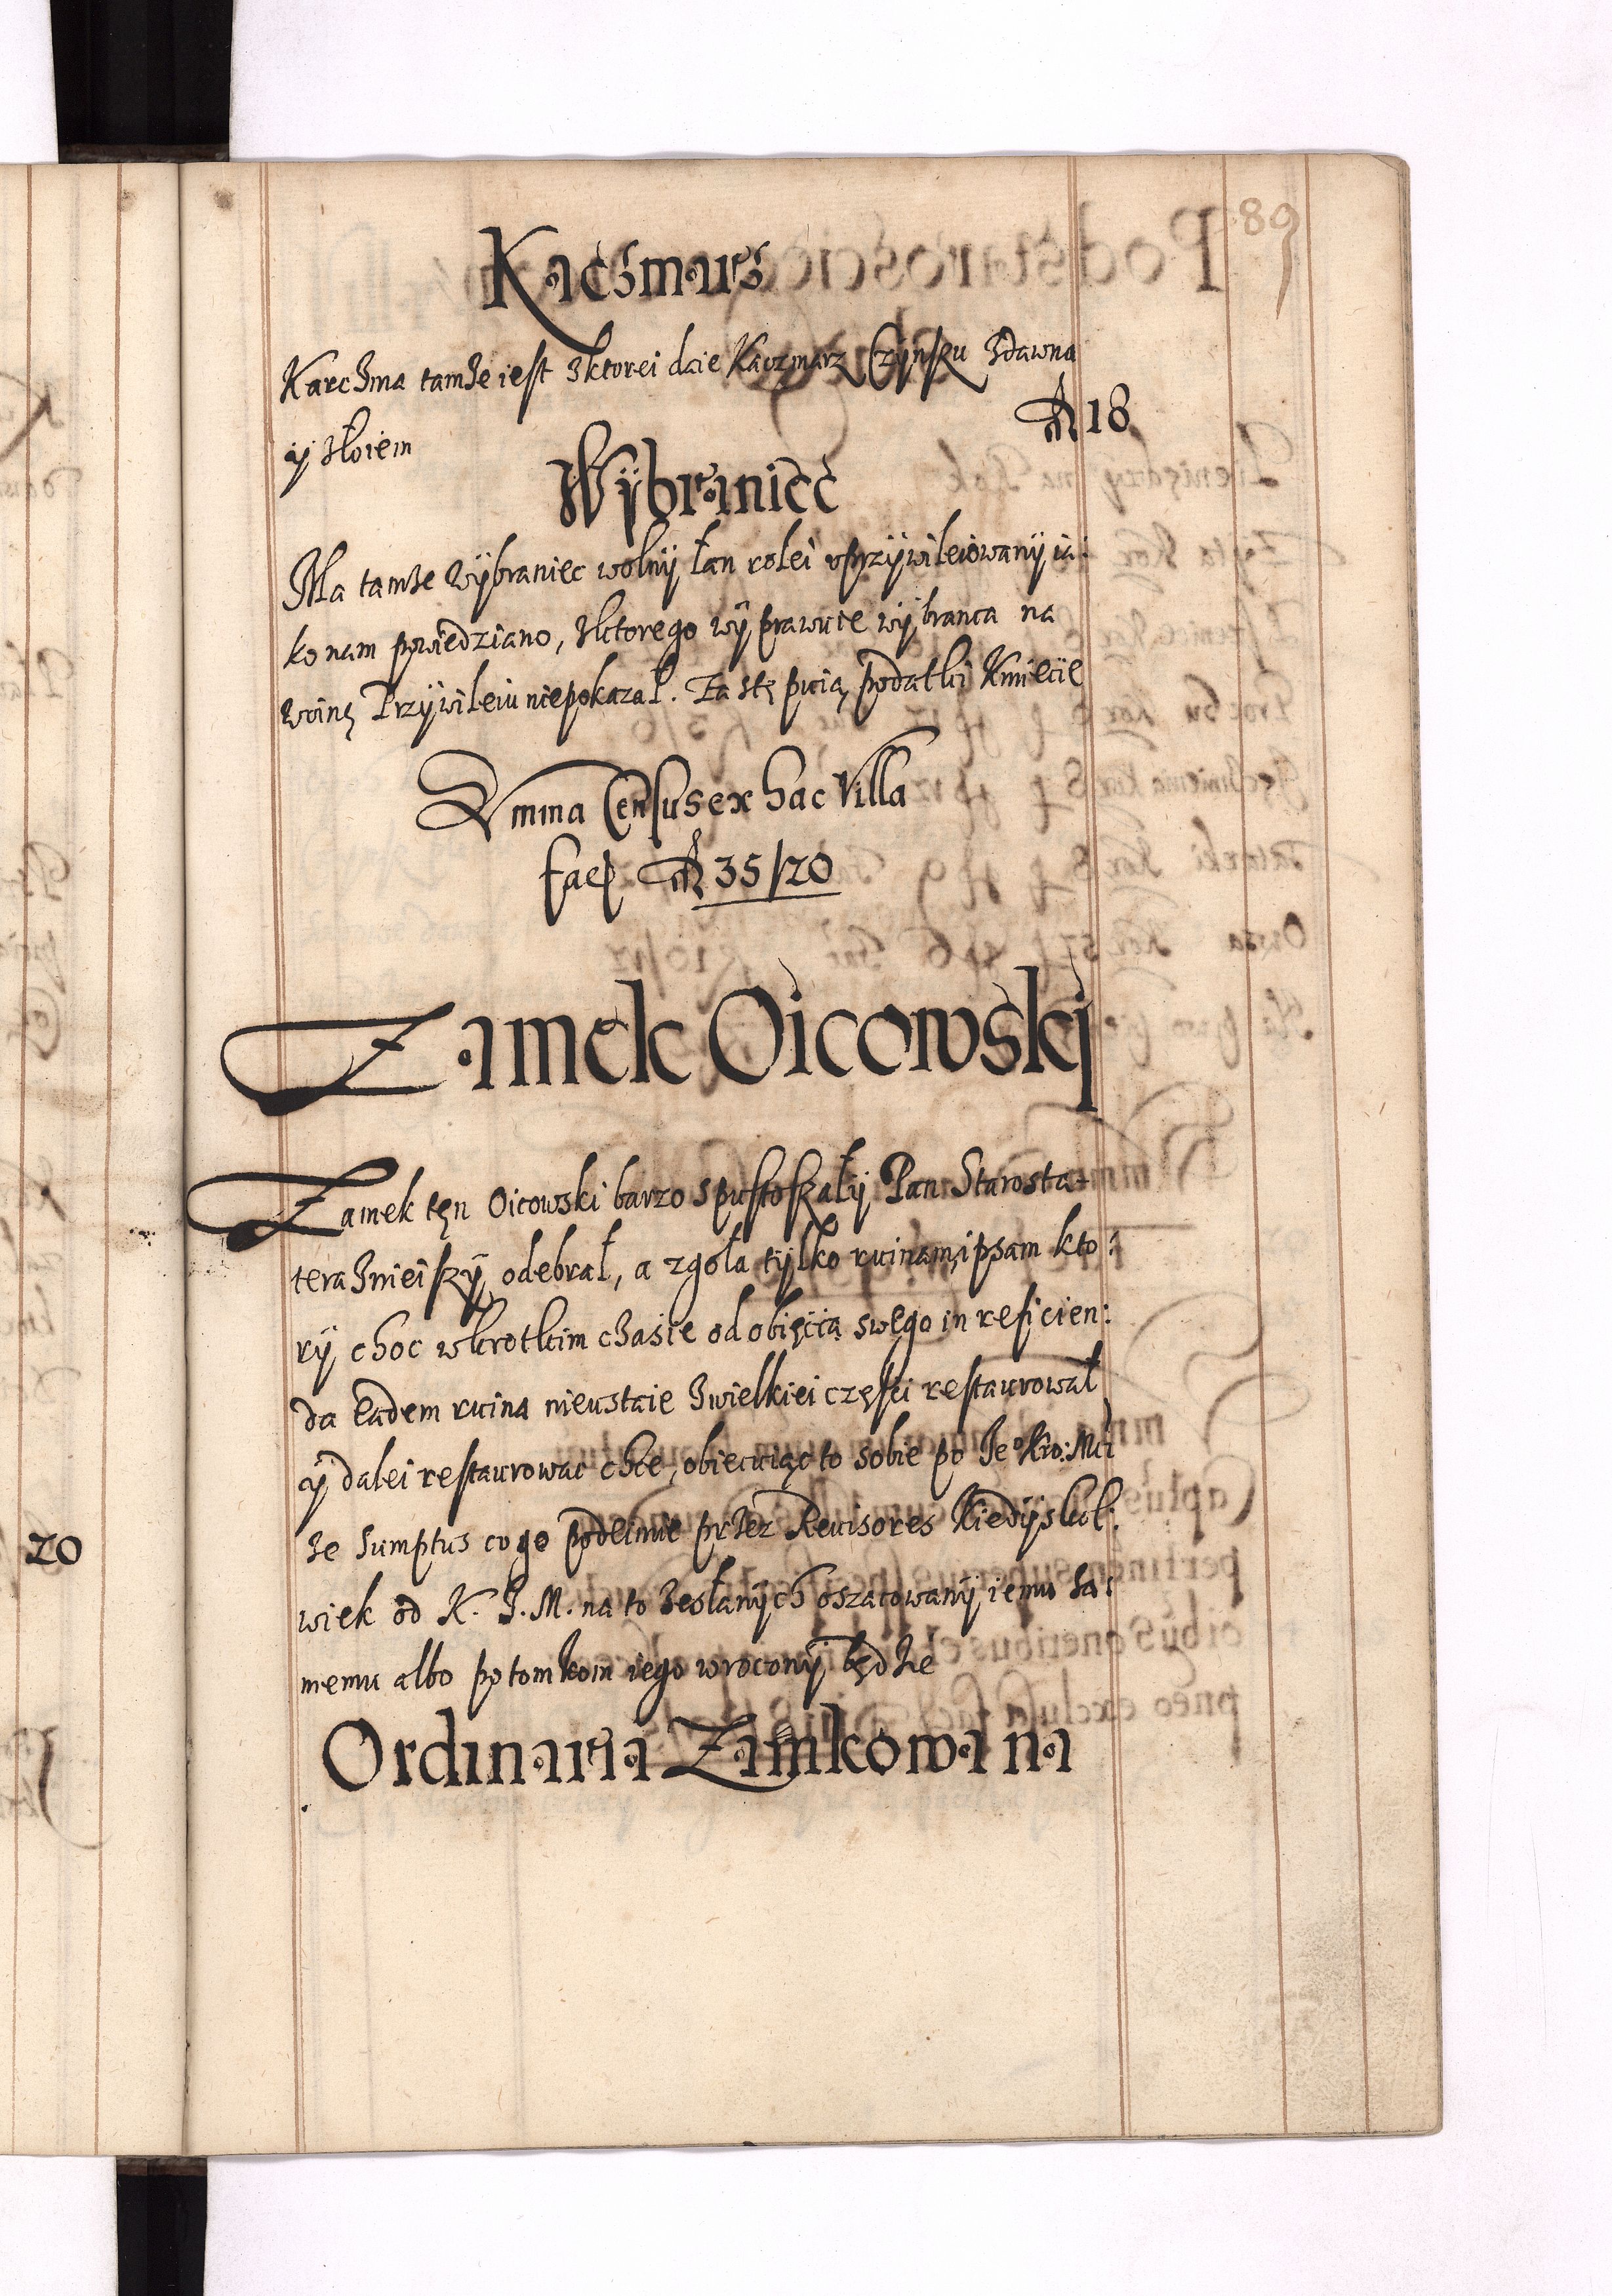 89
Kaczmarz
Karczma tamze iest z ktorei daie Kaczmarz Czynszu zdawna
y złoiem 18
Wÿbraniec
Ma tamze Wÿbraniec wolnÿ łan rolei uprzÿwileiowanÿ ia:
ko nam powiedziano, z ktorego wÿprawuie wÿbranca na
woinę Przÿwileiu niepokazał. Za stępuią podatki Kmiecie
Summa Census ex hac Villa
facit 35/20
Zamek Oicowskj
Zamek tęn Oicowski barzo spustoszałÿ Pan Starosta
terazniejszÿ odebrał, a zgoła tÿlko ruinam ipsam kto:
rÿ choc w krotkim czasie od obięcia swęgo in reficien:
da eadem ruina nieustaie z wielkiei częsci restaurował
ÿ dalei restaurowac chce, obiecuiąc to sobie po Je° Kro: Mci
ze sumptus co go podeimie przez Revisores kiedÿskol:
wiek od K. J. M. na to zesłanÿch oszacowanÿ iemu sa:
memu albo potomkom iego wroconÿ będzie
Ordinaria Zamkowa na
20